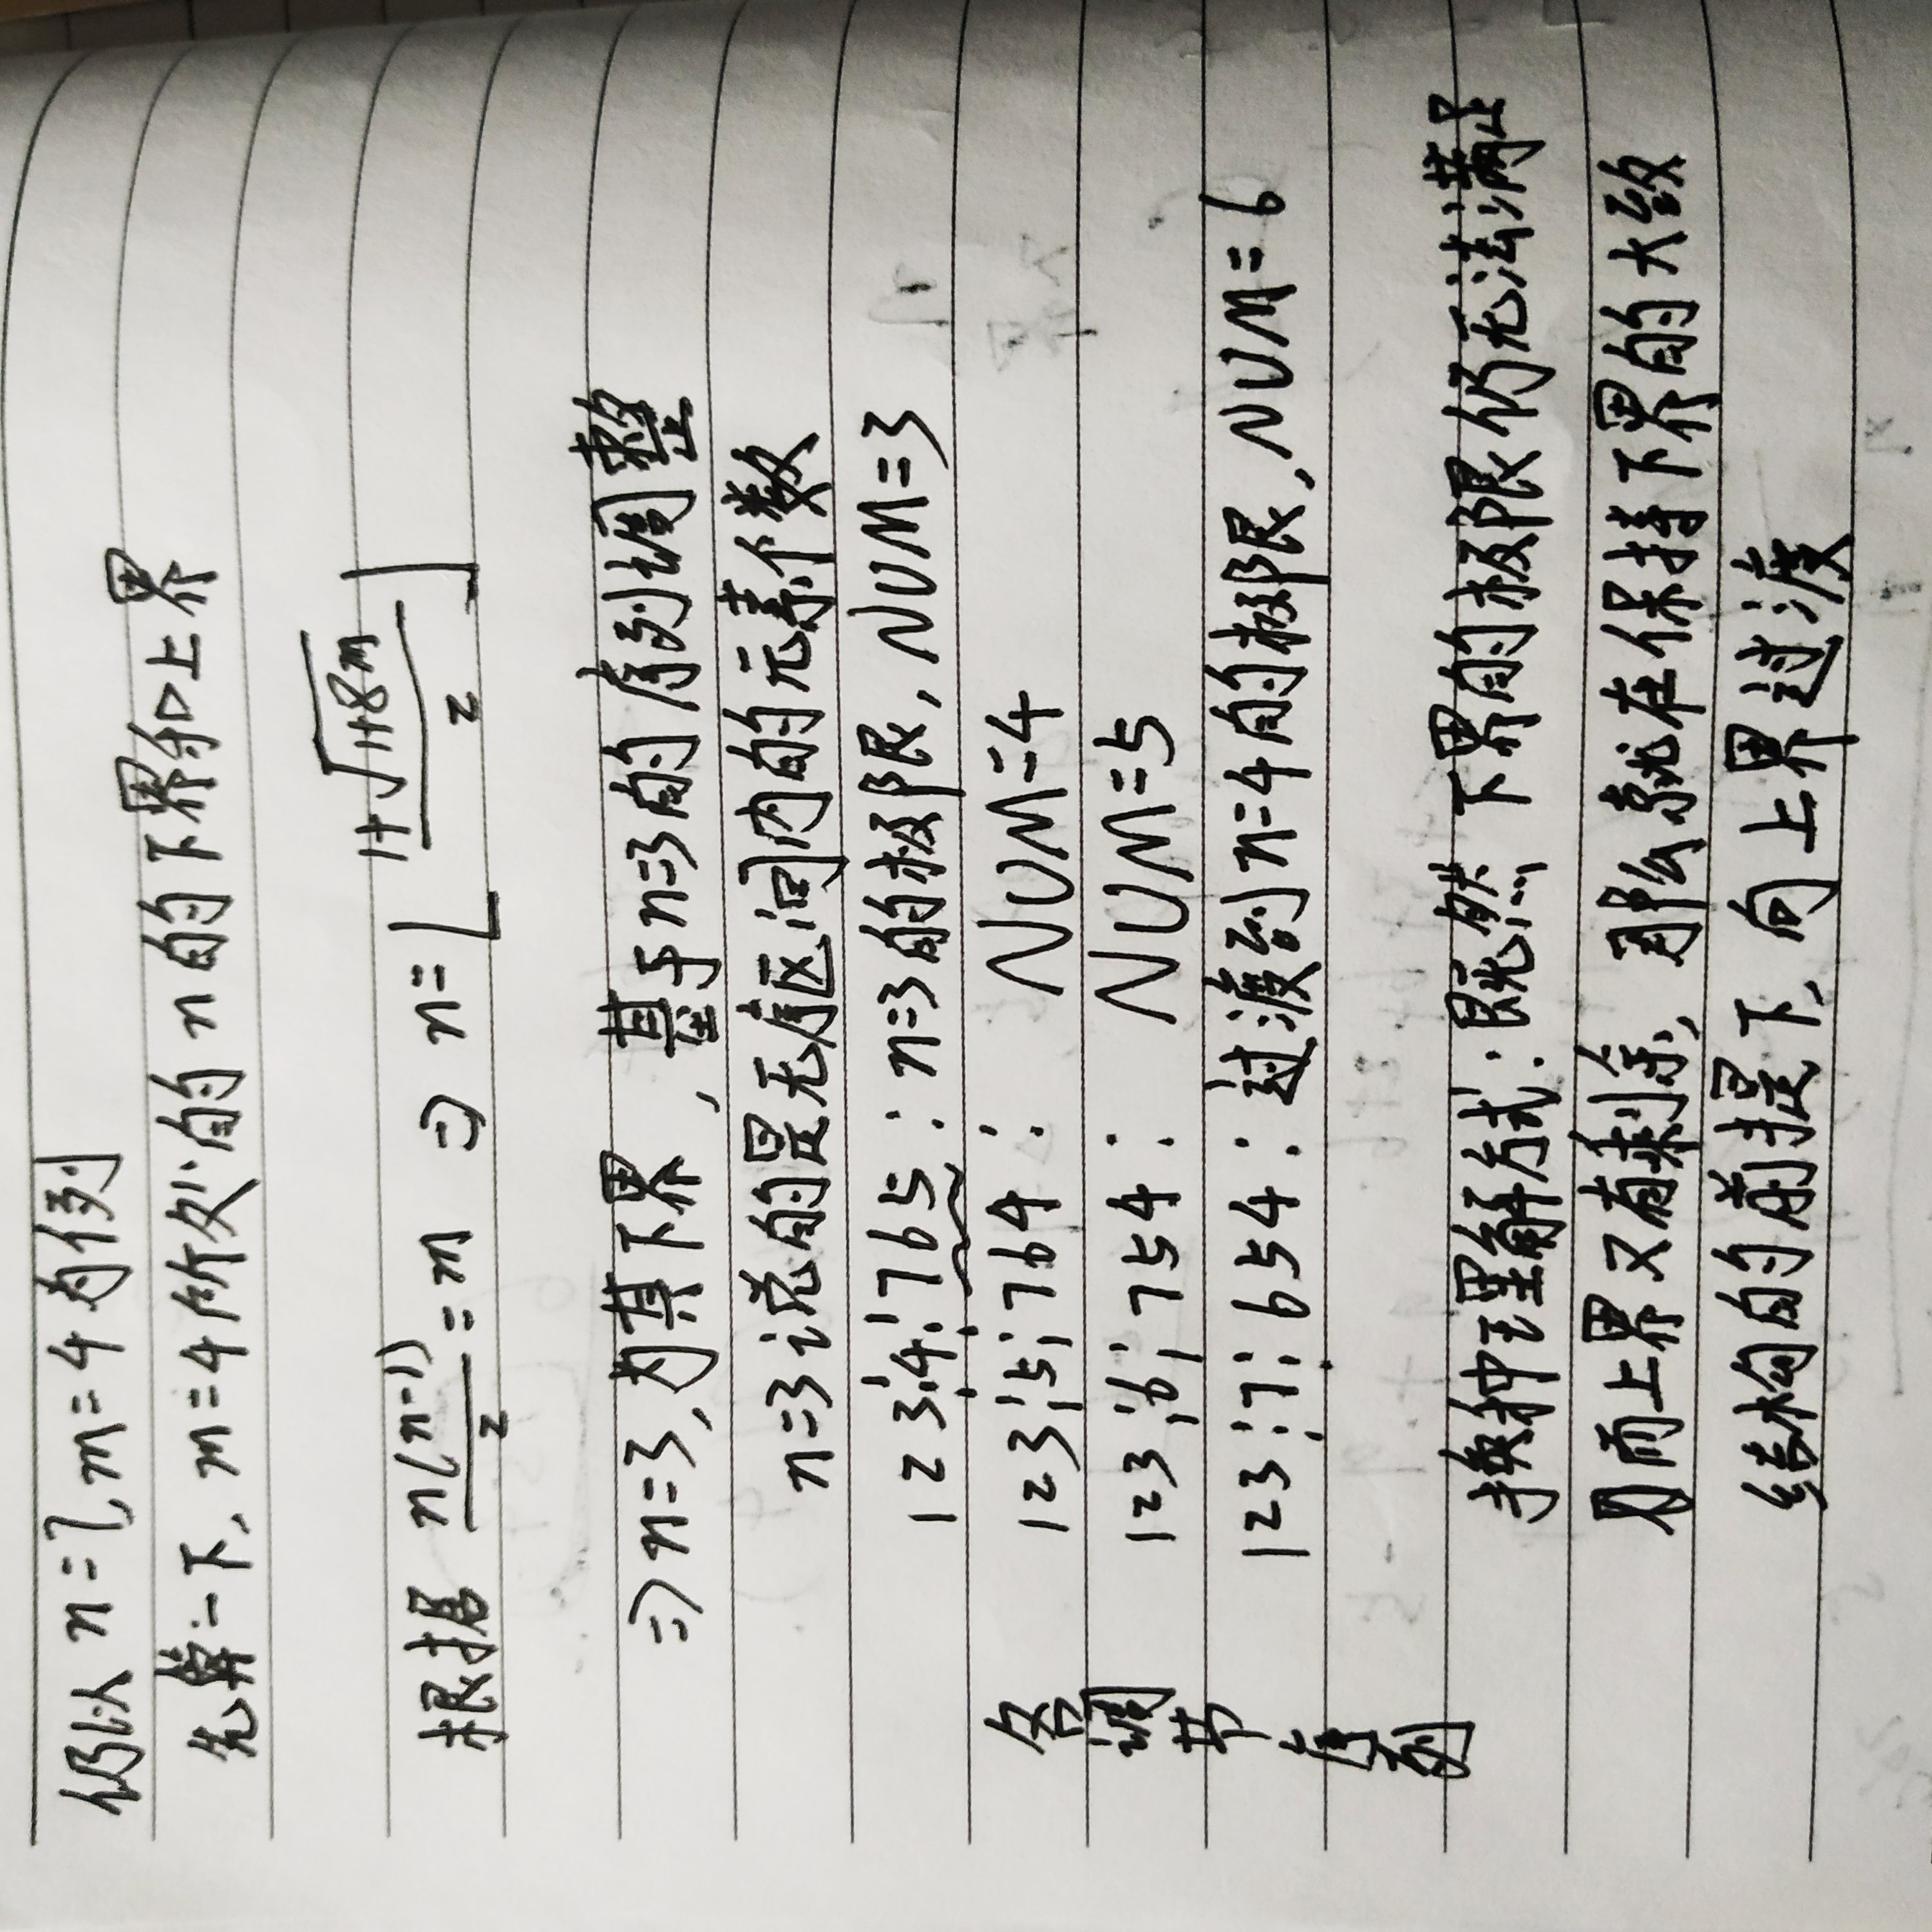 仍以 n=7, m=4 为例
先算一下, m=4 所处的 n 的下界和上界
根据 n(n-1)/2 = m ⇒ n = ⌊(1+√(1+8m))/2⌋
⇒ n=3, 为其下界, 基于n=3的序列调整
n=3 说的是无序区间内的元素个数
123¦4¦765 : n=3的极限, NUM=3
123¦5¦764 : NUM=4
123¦6¦754 : NUM=5
123¦7¦654 : 过渡到n=4的极限, NUM=6
各调节序列
换种理解方式: 既然下界的极限仍无法满足
而上界又有剩余, 那么就在保持下界的大致
结构的前提下, 向上界过渡